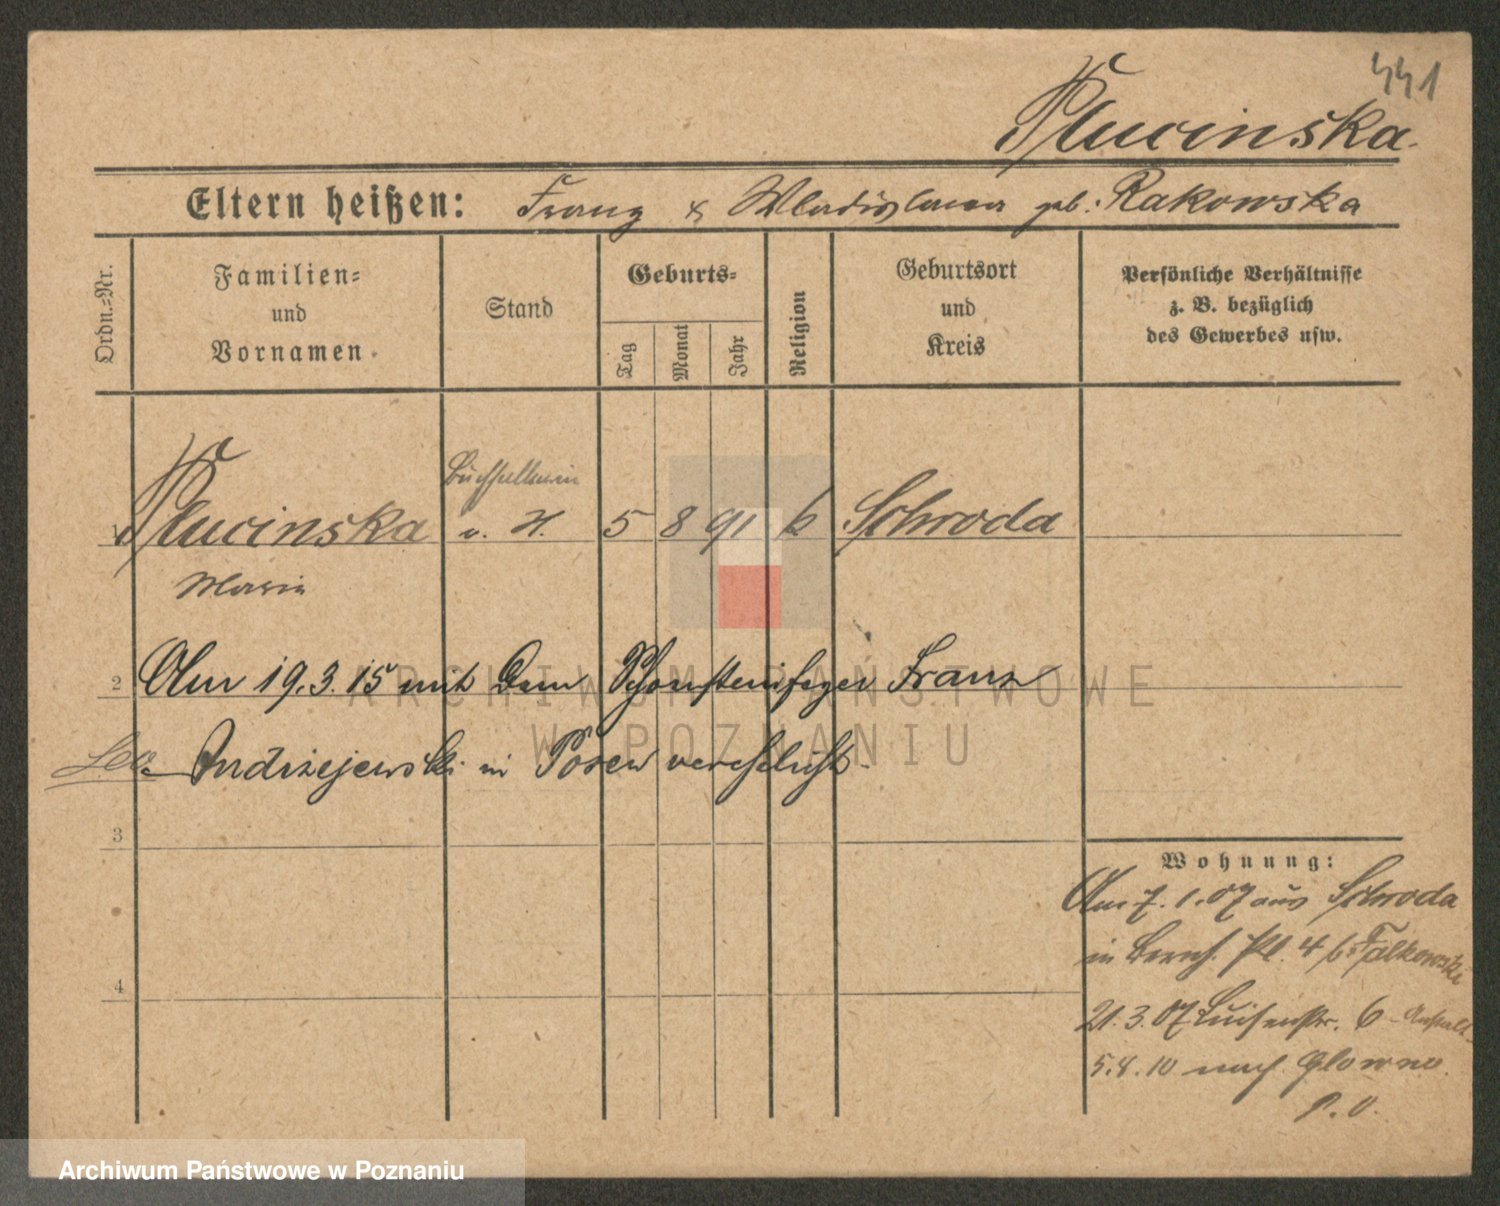 441
Plucinska.
Eltern heißen: Franz & Wladislawa geb: Rakowska
Ordn.=Nr.
Familien=
und
Vornamen.
Stand
Geburts=
Tag
Monat
Jahr
Religion
Geburtsort
und
Kreis
Persönliche Verhältnisse
z. B. bezüglich
des Gewerbes usw.
1 Plucinska
Maria
v. H. 5 8 91 k Schroda
2 Am 19.3.15 mit dem Schornsteinfeger Franz
Andrzejewski in Posen verehelicht.
3
4
Wohnung:
Am 7.1.07 aus Schroda
in Bernh. Pl. 4 b. Falkowski
21.3.07 Luisenstr. 6 - Anstalt
5.8.10 nach Glowno
P. O.
ARCHIWUM PAŃSTWOWE
W POZNANIU
Archiwum Państwowe w Poznaniu